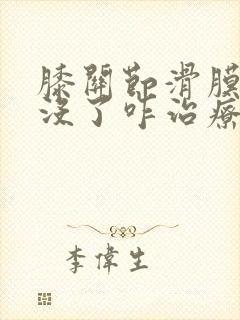 膝關節滑膜
沒了咋治療
李偉生